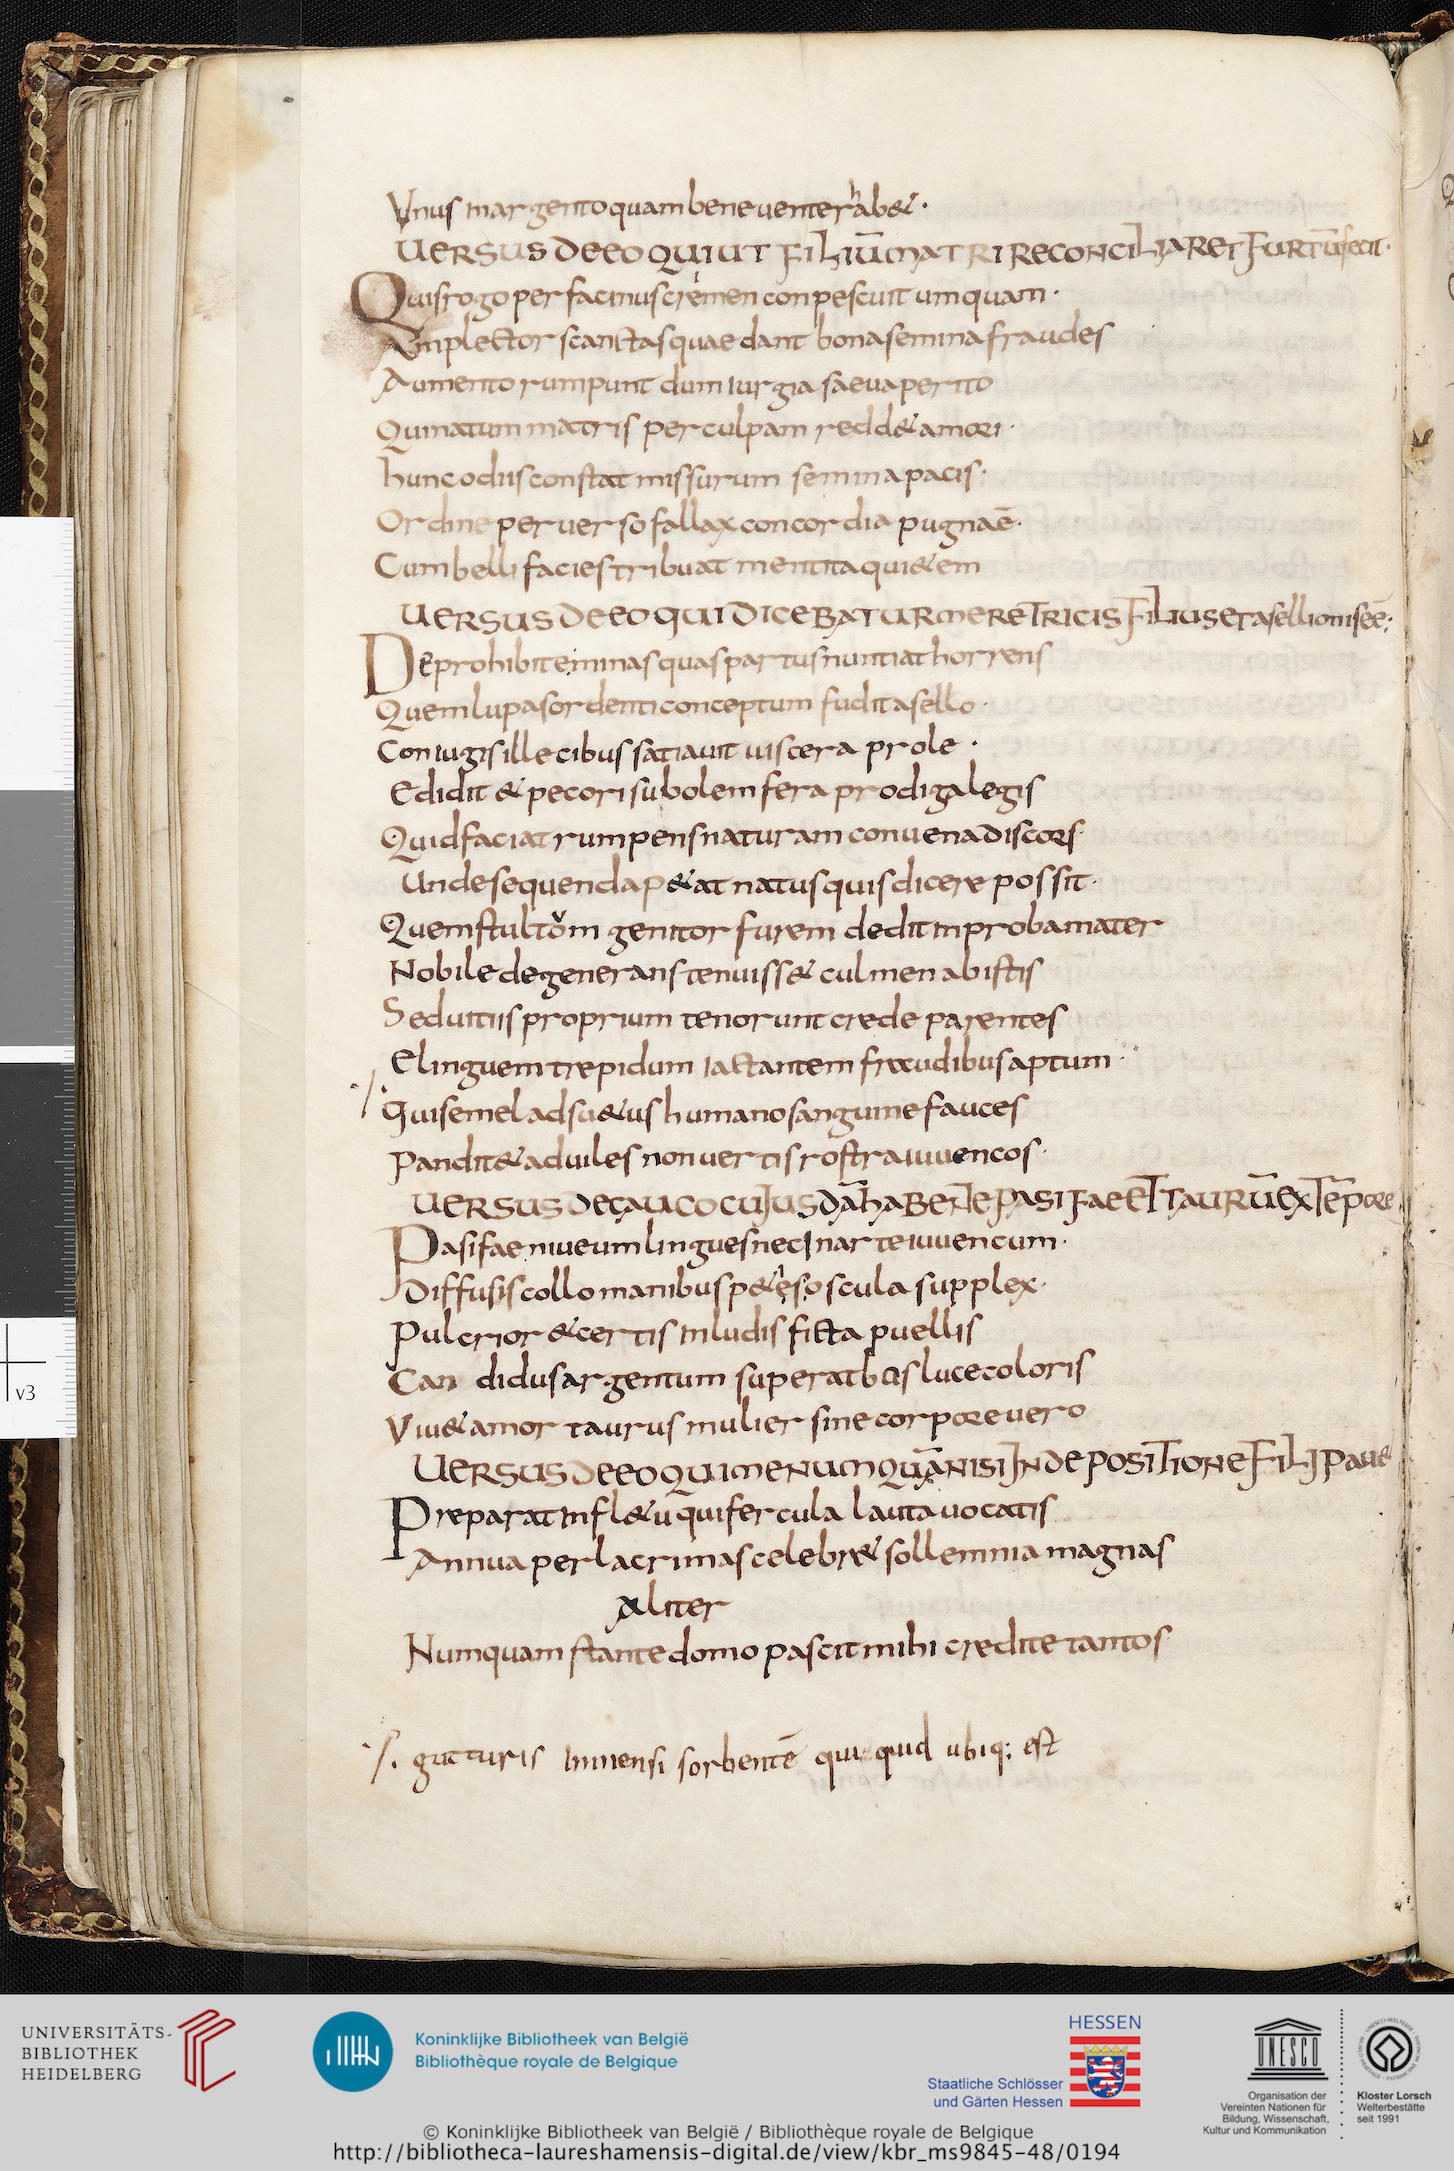 Vnus inargento quam bene venter habet·
VERSUS DE EO QUI UT FILIŪ MATRI RECONCILIARET FURTŪ fecit·
Quis rogo per facinus cremen conpescuit umquam·
Amplector scanctas quae dant bona semina fraudes
Aumento rumpunt dum iurgia saeva perito
Qui natum matris per culpam reddet amori·
hunc odiis constat missurum semina pacis·
Ordine perverso fallax concordia pugnaē·
Cum belli facies tribuat mentita quietem
UERSUS DE EO QUI DICEBATUR MERETRICIS FILIUS ET asellionis eē·
De prohibite minas quas partus nuntiat horrens
Quem lupa sordenti conceptum fudit asello·
Coniugis ille cibus satiauit uiscera prole·
Edidit & pecori subolem fera prodiga legis
Quid faciat rumpens naturam convena discors·
Unde sequenda petat natus quis dicere possit·
Quem stultom genitor furem dedit inproba mater
Nobile degenerans tenuisset culmen abistis
Seduitiis proprium tenorunt crede parentes
Elinguem trepidum iactantem frecudibus aptum·
Qui semel adsuetus humano sanguine fauces
Pandit & ad uiles non uertis rostra iuuencos·
UERSUS DE CAUCO CUJUSDĀ HABENTE PASIFAE ET TAURŪ EX TĒPORE
Pasifae niueum lingues nec Inarte iuuencum·
Diffusis collo manibus petes oscula supplex·
Pulcrior & certis inludis ficta puellis
Candidus argentum superat bis luce coloris
Viuet amor taurus mulier sine corpore uero
UERSUS DE EO QUI ME NUMQUĀ NISI IN DEPOSITIONE FILII Pauet
Preparat in fletu qui fercula lauta uocatis
Annua per lacrimas celebret sollemnia magnas
Aliter
Numquam stante domo pascit mihi credite tantos·
gutturis inmensi sorbentē quicquid ubiq; est
v3
UNIVERSITÄTS-
BIBLIOTHEK
HEIDELBERG
Koninklijke Bibliotheek van België
Bibliothèque royale de Belgique
HESSEN
Staatliche Schlösser
und Gärten Hessen
UNESCO
Organisation der
Vereinten Nationen für
Bildung, Wissenschaft,
Kultur und Kommunikation
Kloster Lorsch
Welterbestätte
seit 1991
© Koninklijke Bibliotheek van België / Bibliothèque royale de Belgique
http://bibliotheca-laureshamensis-digital.de/view/kbr_ms9845-48/0194